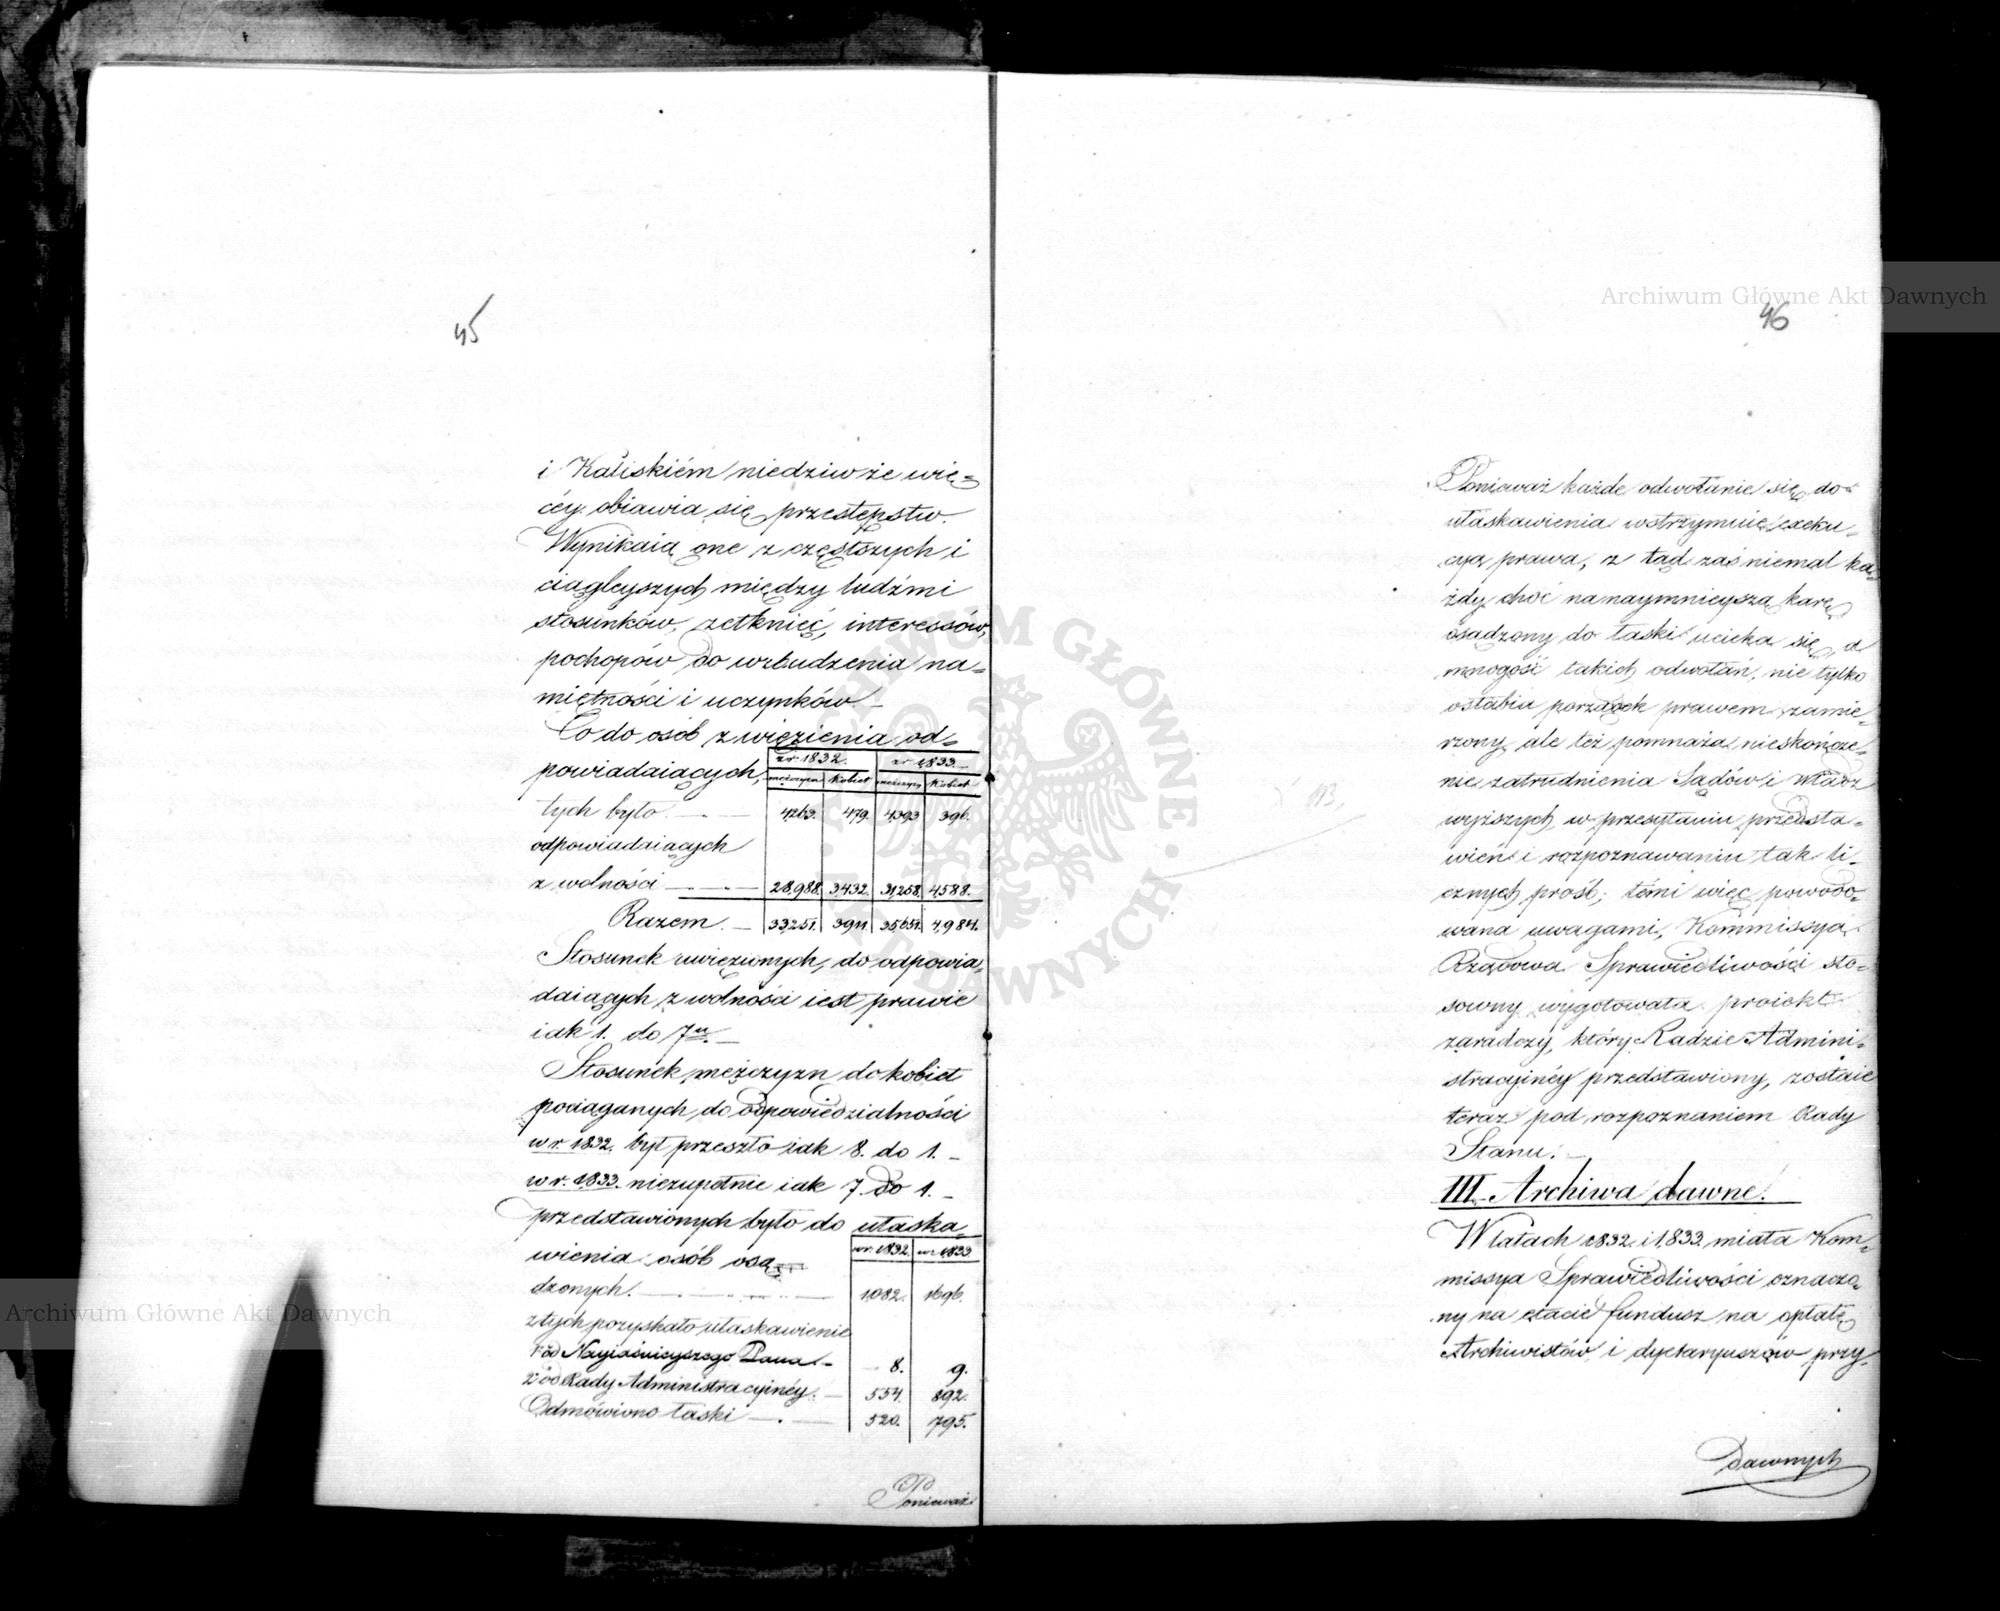 45
i Kaliskiém niedziw że wię=
céy obiawia się przestępstw.
Wynikaią one z częstszych i
ciągleyszych między ludźmi
stosunków, zetknięć, interessów,
pochopów do wzbudzenia na=
miętności i uczynków. —
Co do osób z więzienia od=
powiadaiących,
w r. 1832. w r. 1833.
mężczyzn Kobiet mężczyzn Kobiet
tych było. — 4,263. 479. 4,393 396.
odpowiadaiących
z wolności — 28,988. 3,432. 31,258. 4,588.
Razem. — 33,251. 3,911. 35,651. 4,984.
Stosunek uwięzionych, do odpowia=
daiących z wolności iest prawie
iak 1. do 7u. —
Stosunek mężczyzn do kobiet
pociąganych do odpowiedzialności
w r. 1832. był przeszło iak 8. do 1. —
w r. 1833. niezupełnie iak 7. do 1. —
przedstawionych było do ułaska=
wienia osób osą=
w r. 1832. w r. 1833
dzonych. — 1,082. 1,696.
z tych pozyskało ułaskawienie
1° od Nayiaśnieyszego Pana. — 8. 9.
2° od Rady Administracyinéy. — 554. 892.
Odmówiono łaski — 520. 795.
Ponieważ
46
Ponieważ każde odwołanie się do
ułaskawienia wstrzymuie exeku=
cyą prawa, z tąd zaś niemal ka=
żdy choć na naymnieyszą karę
osądzony do łaski ucieka się, a
mnogość takich odwołań, nie tylko
osłabia porządek prawem zamie=
rzony, ale też pomnaża nieskończe=
nie zatrudnienia Sądów i Władz
wyższych, w przesyłaniu przedsta=
wień i rozpoznawaniu tak li=
cznych próśb; témi więc powodo=
wana uwagami, Kommissya
Rządowa Sprawiedliwości sto=
sowny wygotowała proiekt
zaradczy, który Radzie Admini=
stracyinéy przedstawiony, zostaie
teraz pod rozpoznaniem Rady
Stanu. —
III. Archiwa dawne.
W latach 1832. i 1,833. miała Kom=
missya Sprawiedliwości oznaczo=
ny na etacie fundusz na opłatę
Archiwistów i dyetaryuszów przy
Dawnych
Archiwum Główne Akt Dawnych
Archiwum Główne Akt Dawnych
ARCHIWUM GŁÓWNE AKT DAWNYCH